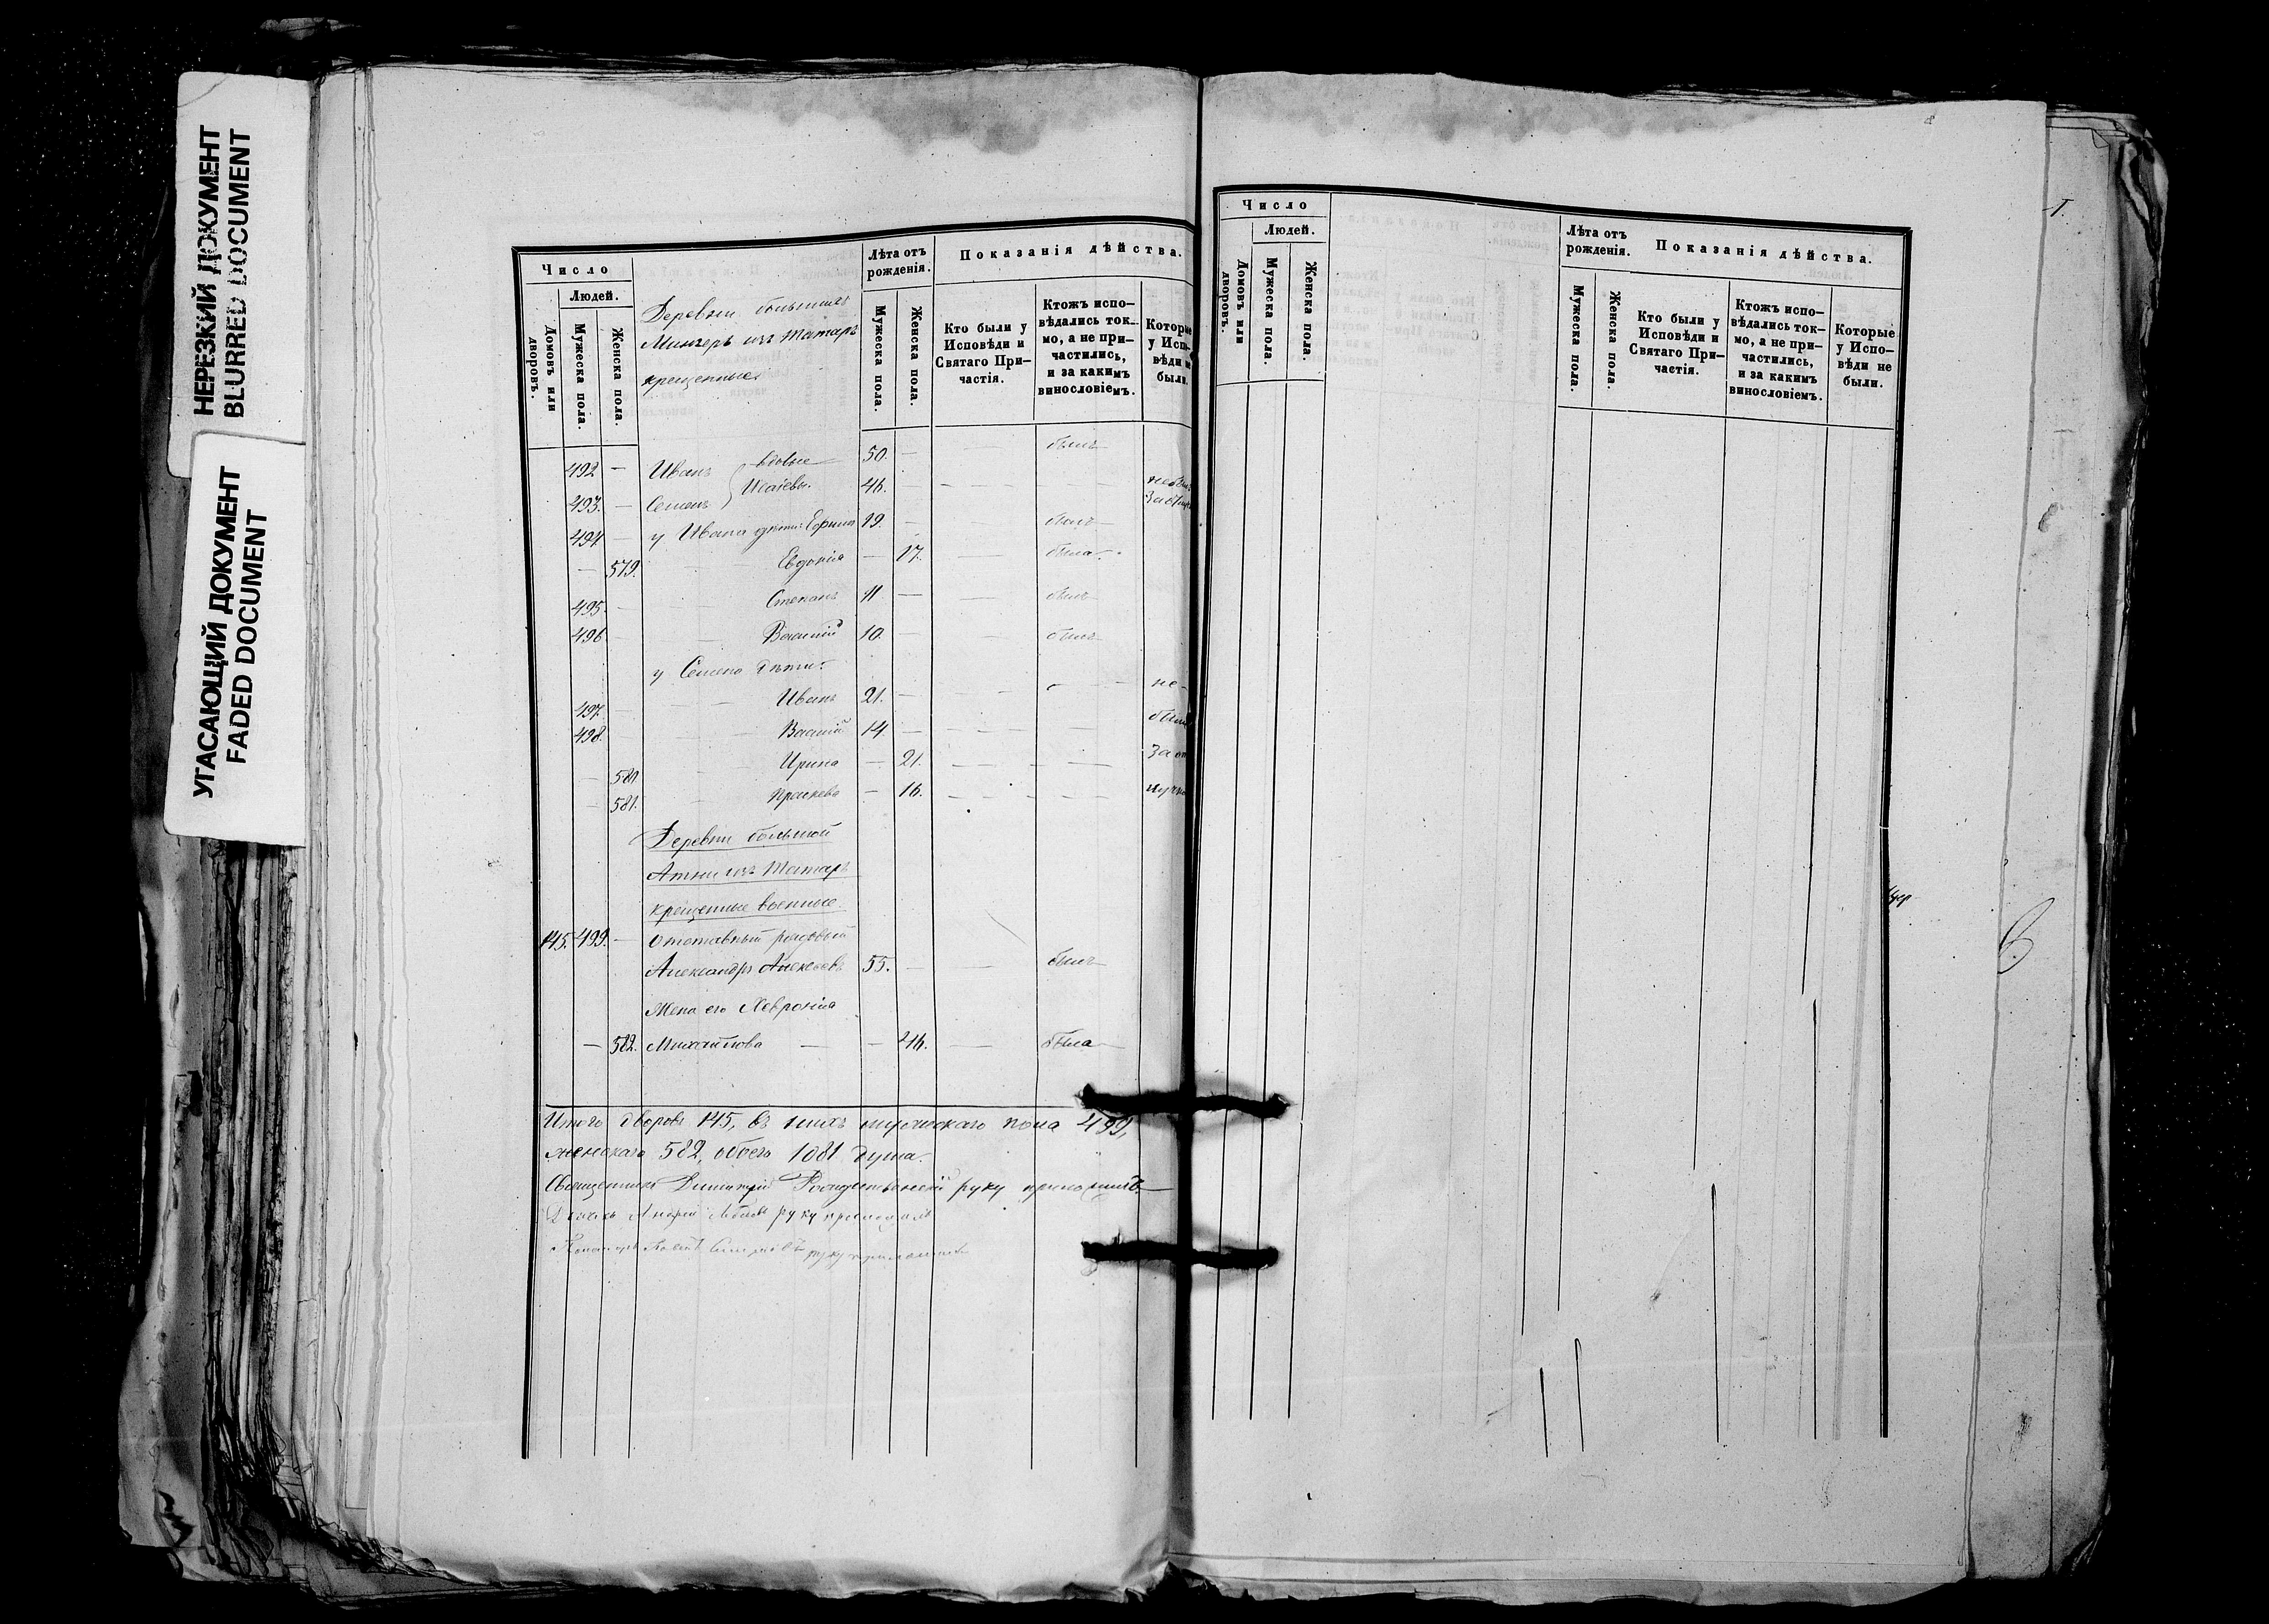 НЕРЕЗКИЙ ДОКУМЕНТ
BLURRED DOCUMENT
УГАСАЮЩИЙ ДОКУМЕНТ
FADED DOCUMENT
Число
Людей.
Домовъ или дворовъ.
Мужеска пола.
Женска пола.
Деревни большихъ
Мингеръ изъ Татаръ
крещенные
Лѣта отъ рожденія.
Мужеска пола.
Женска пола.
Показанія дѣйства.
Кто были у Исповѣди и Святаго При-частія.
Ктожъ испо-вѣдались ток-мо, а не при-частились, и за какимъ винословіемъ.
Которые у Испо-вѣди не были.
492 — Иванъ вдовые 50. — — былъ
493. — Семенъ Исаіевы. 46. — — — небылъ
494 — у Ивана дѣти: Ефимъ 19. — — былъ
— 579. Евдокія — 17. — была
495. — Степанъ 11 — — былъ
496 — Василій 10. — былъ
у Семена дѣти:
497. Иванъ 21. — — — не-
498. Василій 14. — — — были
— 580. Ирина — 21. — — — За от
— 581. Праскева — 16. — — — лучк
Деревни большой
Атни изъ Татаръ
крещенные военные.
145. 499. — Отставный рядовый
Александръ Алексѣевъ 55. — — былъ
Жена его Хеврониа
— 582. Михайлова — — 46. — была
Итого дворовъ 145, въ нихъ мужескаго пола 499,
женскаго 582, обоего 1081 душа.
Священникъ Димитрій Рождественскій руку приложилъ.
руку приложилъ
руку приложилъ
Число
Людей.
Домовъ или дворовъ.
Мужеска пола.
Женска пола.
Лѣта отъ рожденія.
Мужеска пола.
Женска пола.
Показанія дѣйства.
Кто были у Исповѣди и Святаго При-частія.
Ктожъ испо-вѣдались ток-мо, а не при-частились, и за какимъ винословіемъ.
Которые у Испо-вѣди не были.